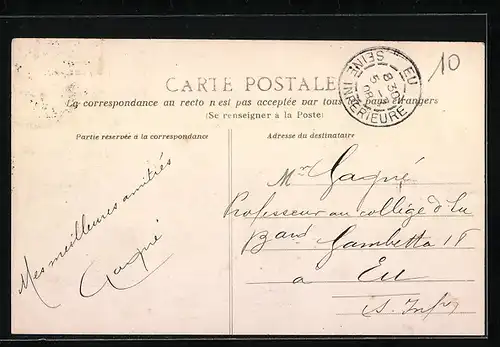 10
CARTE POSTALE
La correspondance au recto n'est pas acceptée par tous les pays étrangers
(Se renseigner à la Poste)
EU
SEINE INFERIEURE
8 30
5 -4
08
Partie réservée à la correspondance
Adresse du destinataire
Mes meilleures amitiés
Gagné
Mr Gagné
Professeur au collège d'Eu
Bard Gambetta 18
a Eu
S. Infre